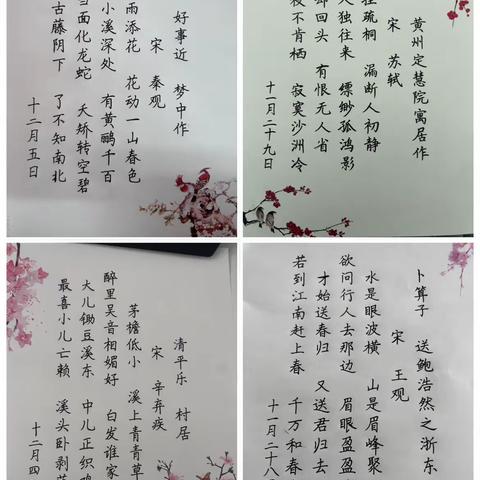 好事近 梦中作
宋 秦观
雨添花 花动一山春色
小溪深处 有黄鹂千百
当面化龙蛇 夭矫转空碧
古藤阴下 了不知南北
十二月五日
黄州定慧院寓居作
宋 苏轼
挂疏桐 漏断人初静
人独往来 缥缈孤鸿影
却回头 有恨无人省
枝不肯栖 寂寞沙洲冷
十一月二十九日
清平乐 村居
宋 辛弃疾
茅檐低小 溪上青青草
醉里吴音相媚好 白发谁家
大儿锄豆溪东 中儿正织
最喜小儿亡赖 溪头卧剥
十二月四
卜算子 送鲍浩然之浙东
宋 王观
水是眼波横 山是眉峰聚
欲问行人去那边 眉眼盈盈
才始送春归 又送君归去
若到江南赶上春 千万和春
十一月二十八